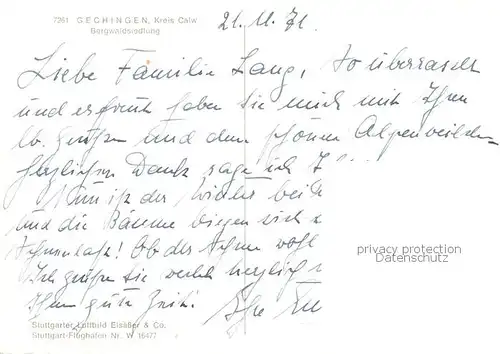 7261 GECHINGEN, Kreis Calw
Bergwaldsiedlung
21.11.71.
Liebe Familie Lang, so überrascht
und erfreut haben Sie mich mit Ihren
lb. Grüßen und dem schönen Alpenveilchen
herzlichen Dank sage ich I
Nun ist der Winter bei
und die Bäume biegen sich
Schneelast! Ob der Schnee wohl
Ich grüße Sie recht herzlich
Ihnen gute Zeit!
privacy protection
Datenschutz
Stuttgarter Luftbild Elsäßer & Co.
Stuttgart-Flughafen Nr. W 16477